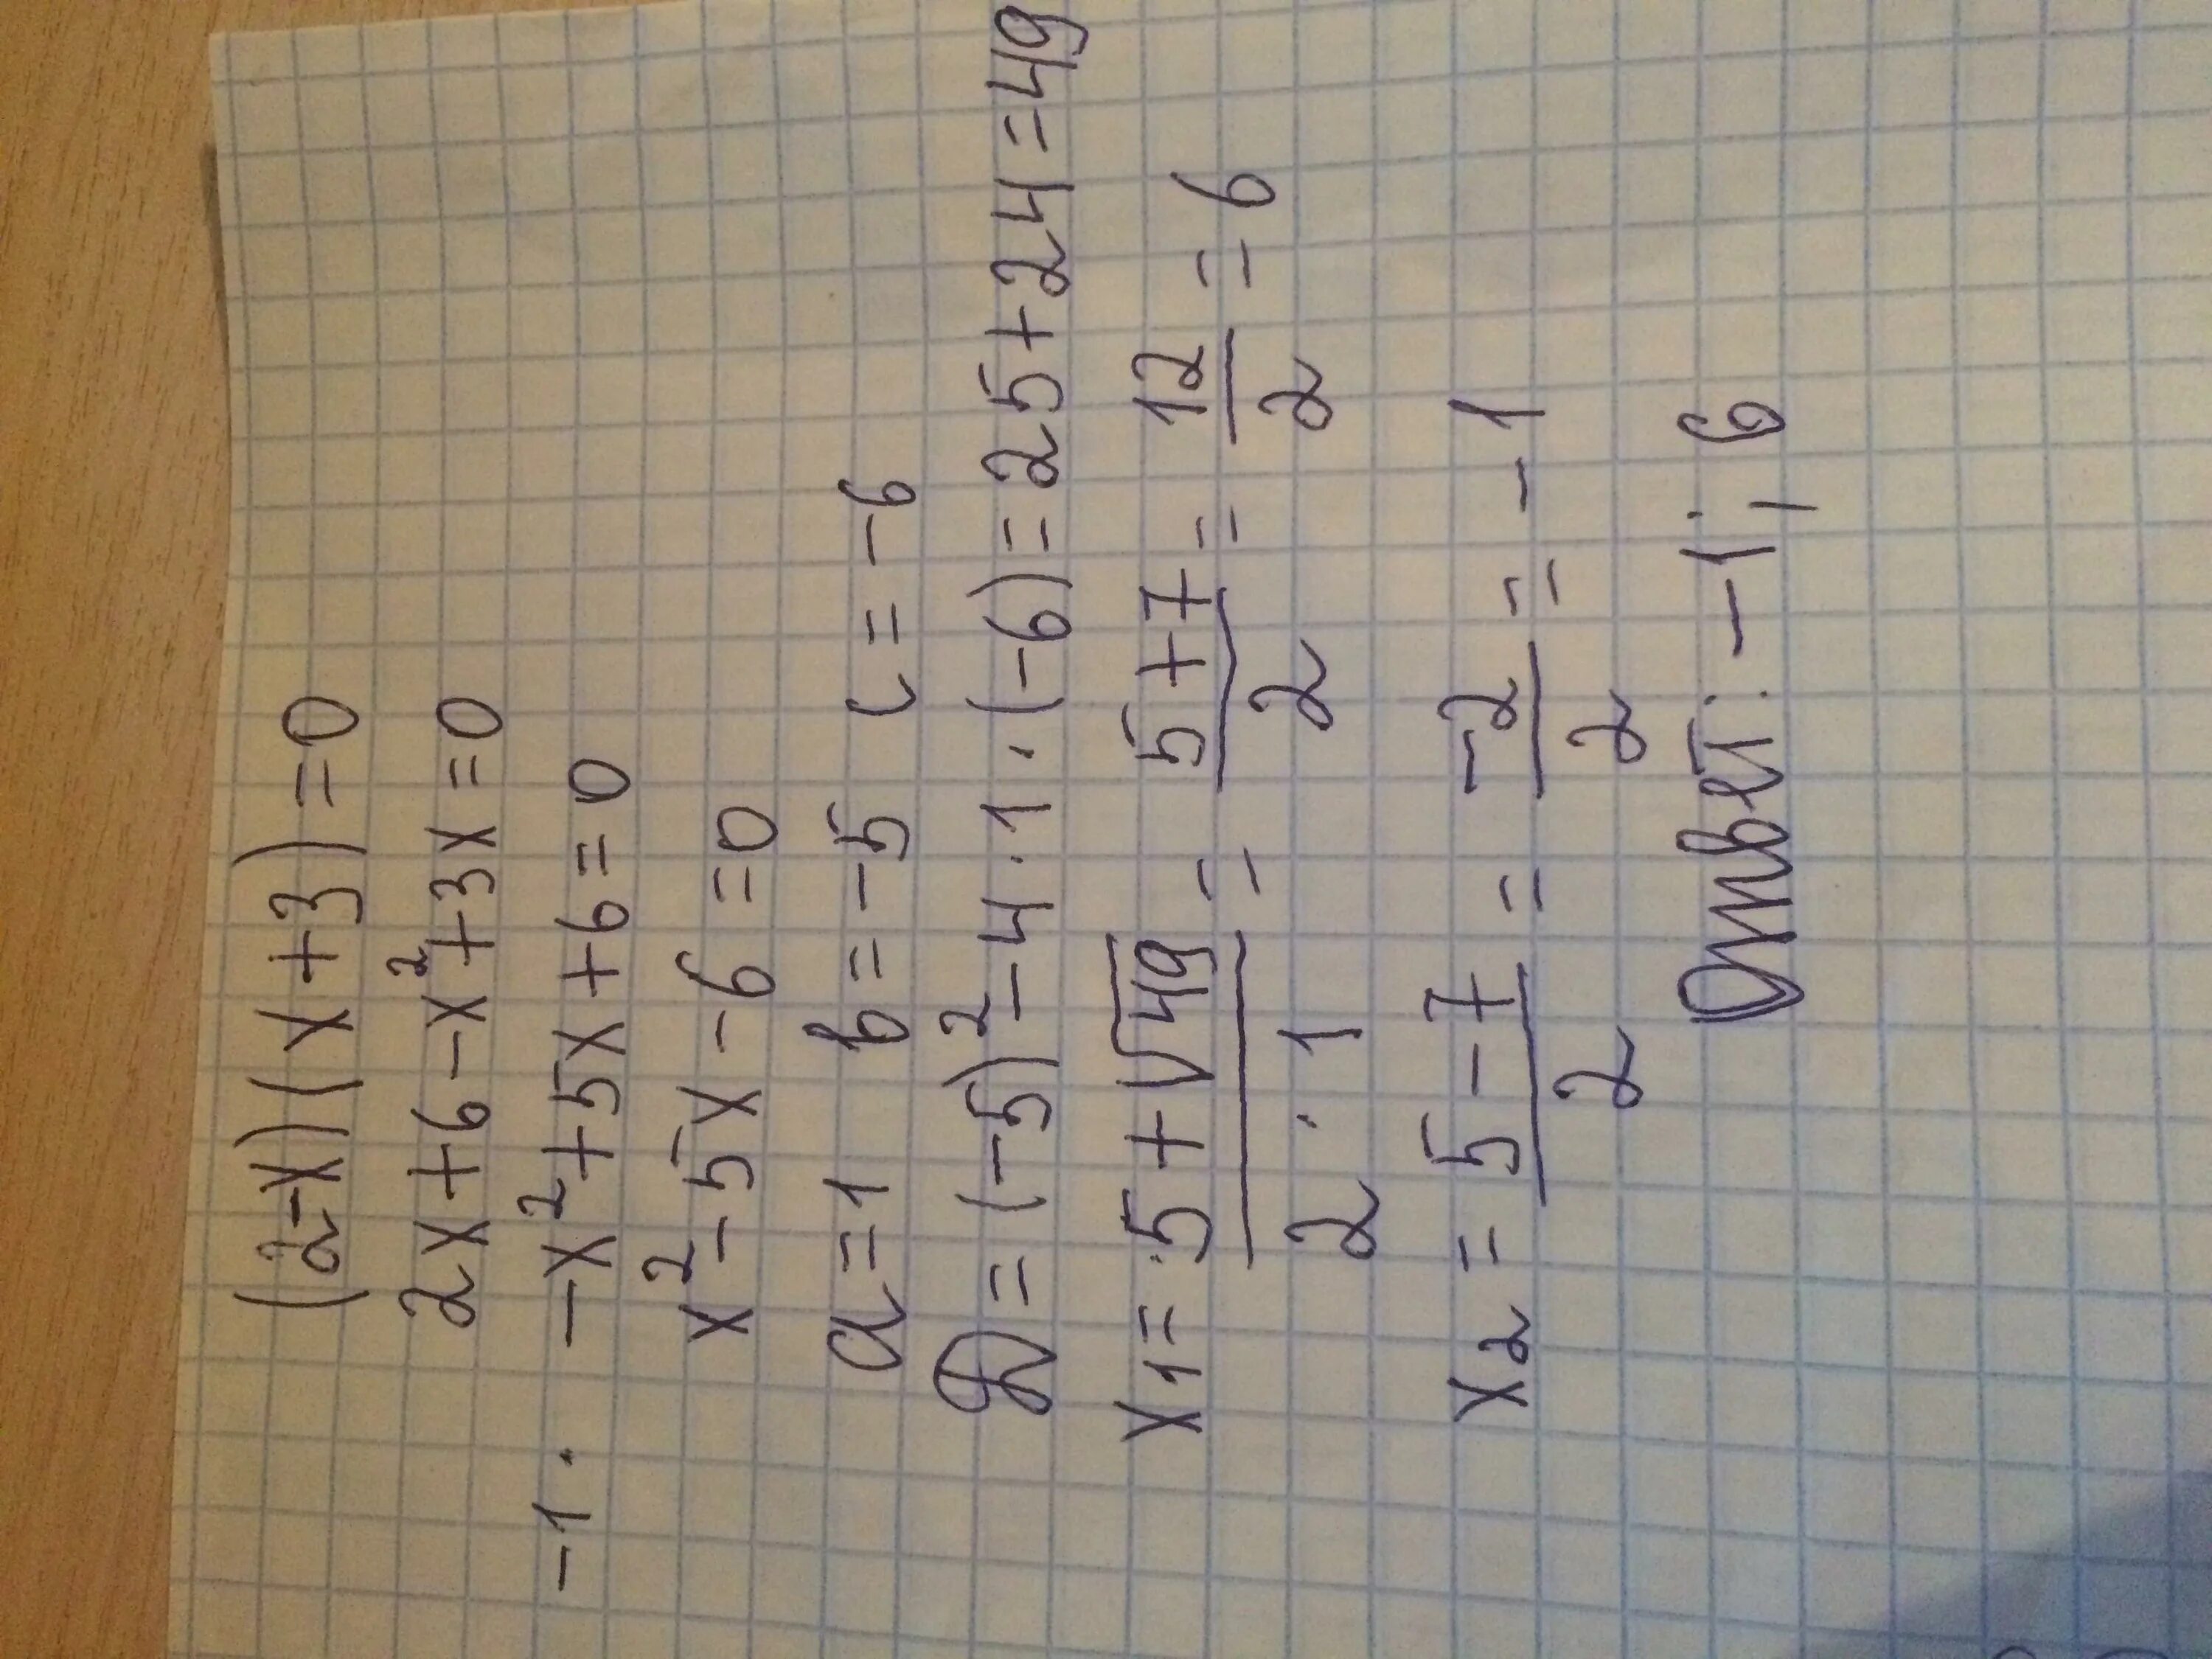 (2-x)(x+3)=0
2x+6-x²+3x=0
-1· -x²+5x+6=0
x²-5x-6=0
a=1 b=-5 c=-6
D=(-5)²-4·1·(-6)=25+24=49
x₁=5+√49/2·1=5+7/2=12/2=6
x₂=5-7/2=-2/2=-1
Ответ: -1; 6